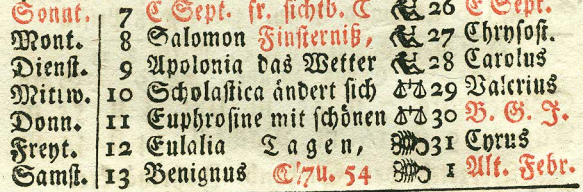 Sonnt. 7 C Sept. fr. sichtb. C 26 C Sept.
Mont. 8 Salomon Finsterniß, 27 Chrysost.
Dienst. 9 Apolonia das Wetter 28 Carolus
Mittw. 10 Scholastica ändert sich 29 Valerius
Donn. 11 Euphrosine mit schönen 30 B. G. J.
Freyt. 12 Eulalia Tagen, 31 Cyrus
Samst. 13 Benignus 7 u. 54 1 Alt. Febr.